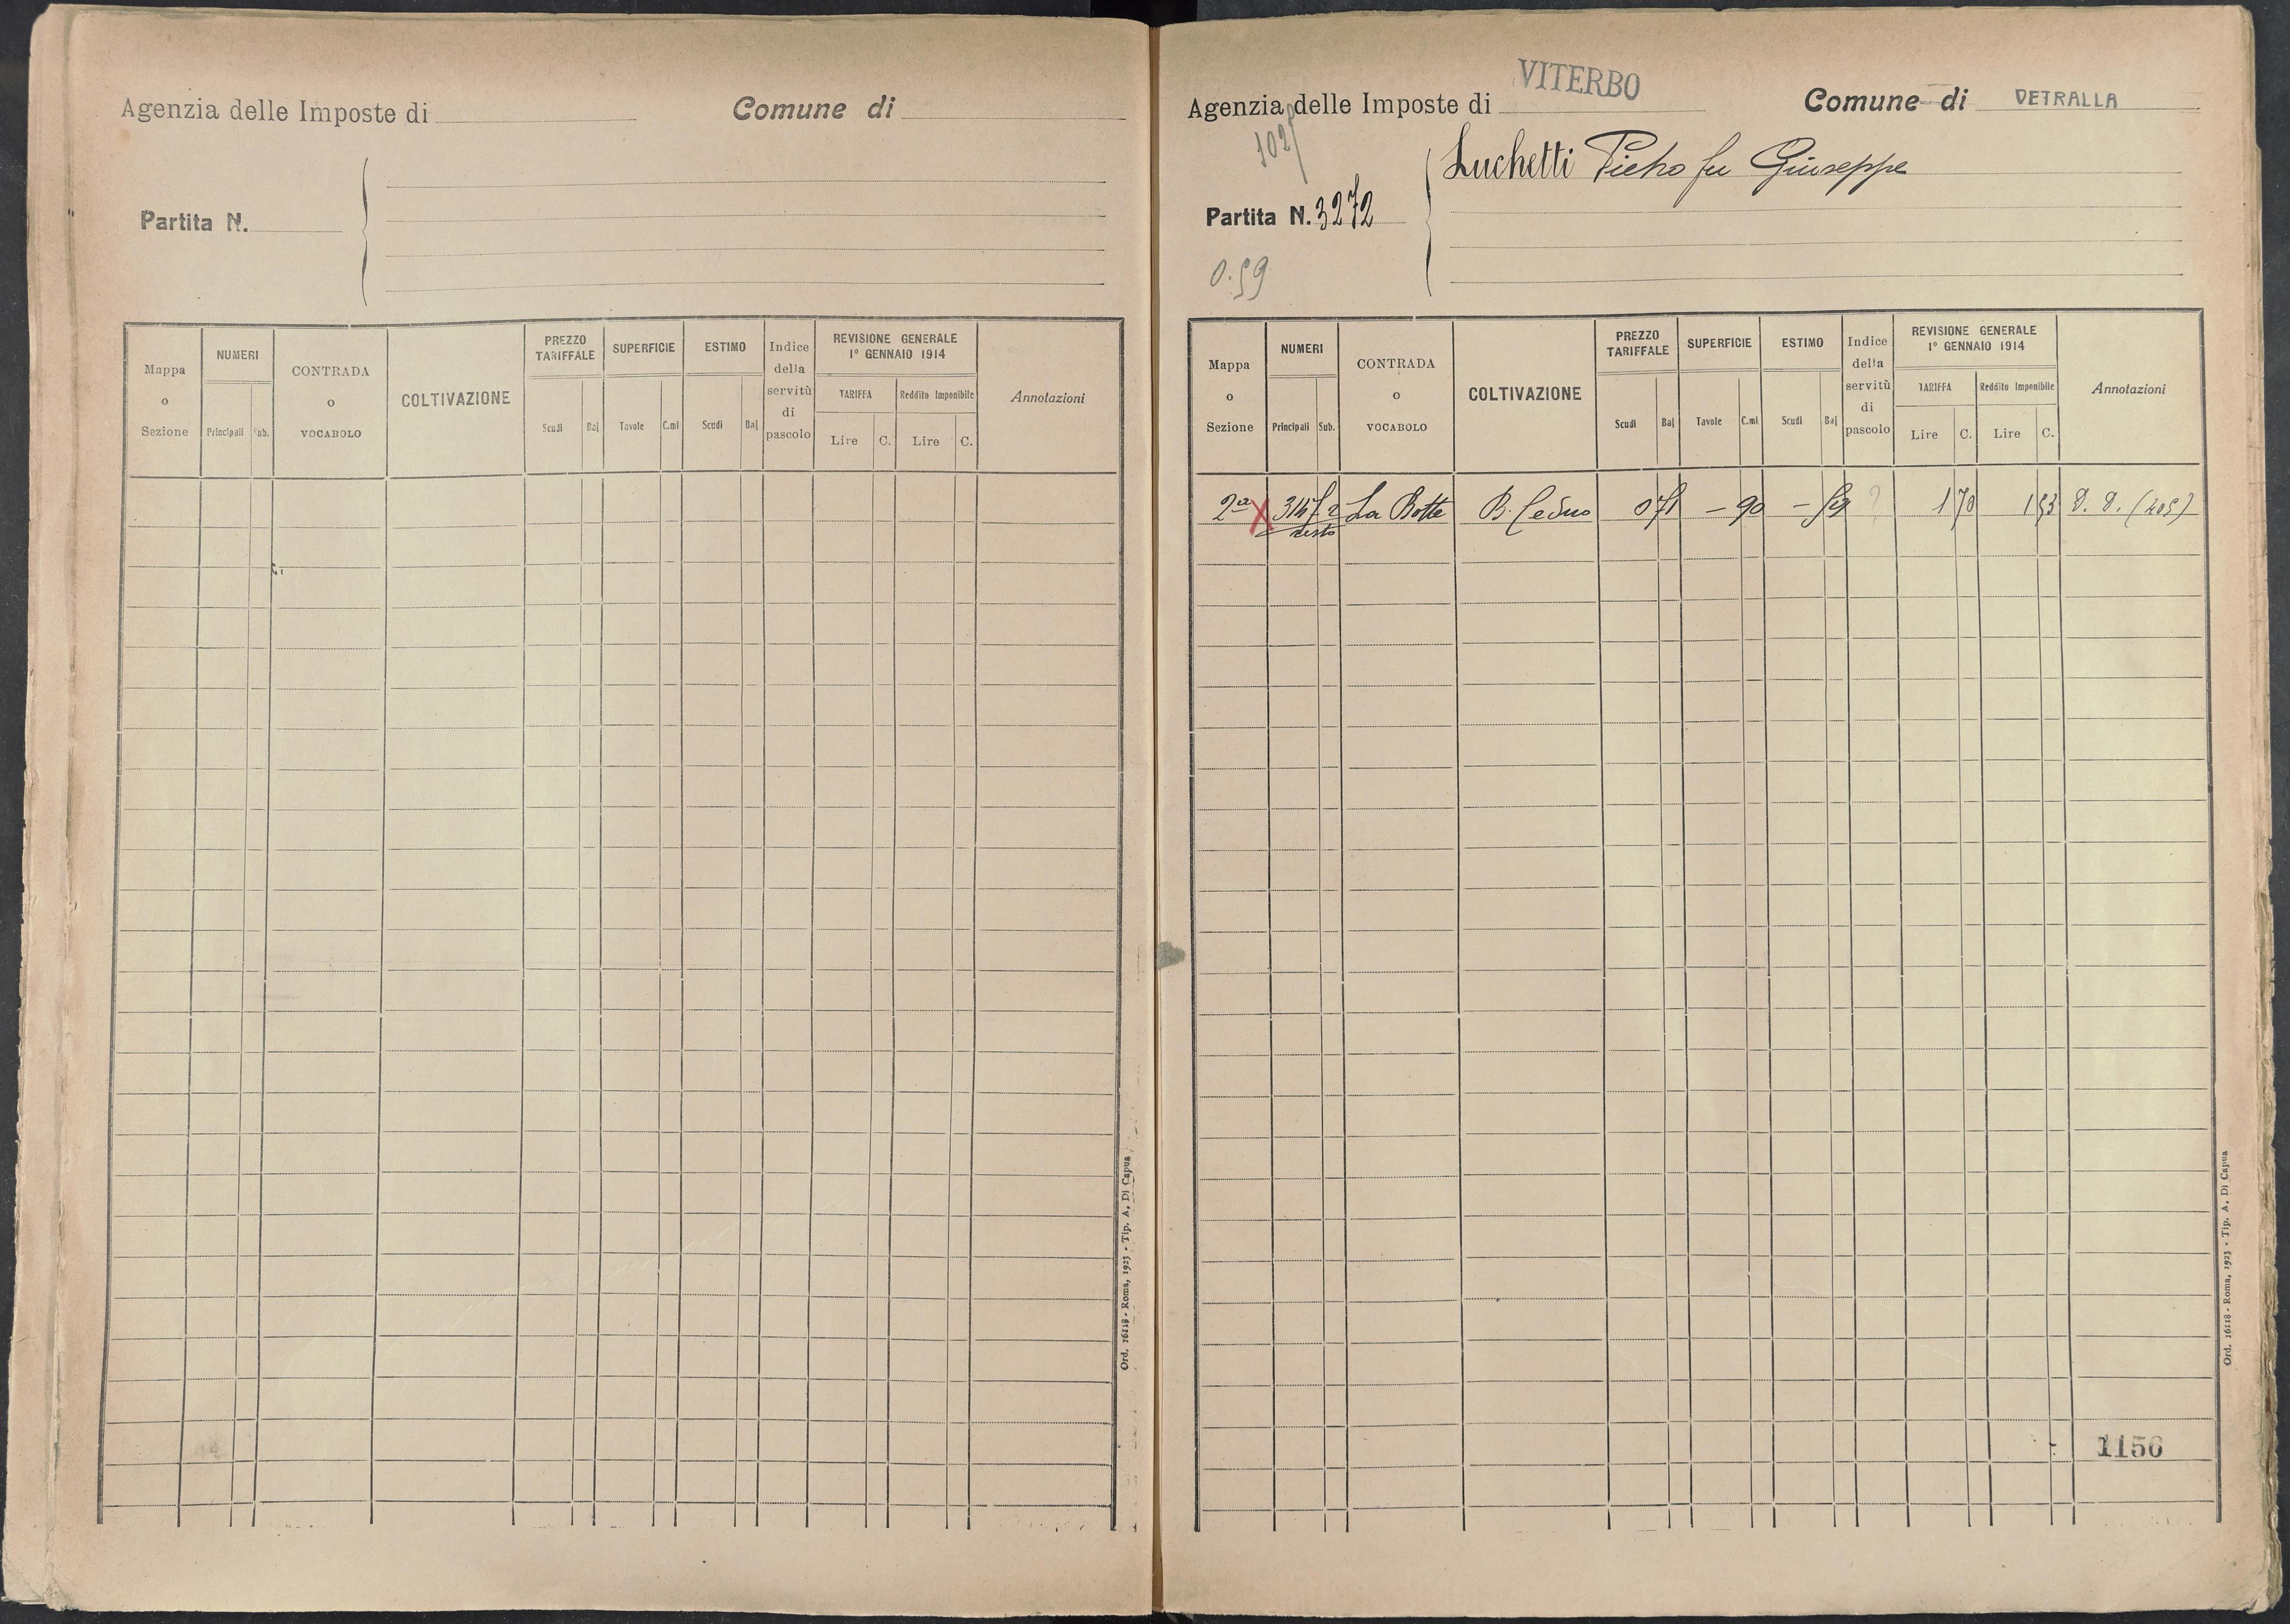 Agenzia delle Imposte di
Comune di
Partita N.
Mappa o Sezione
NUMERI
Principali
Sub.
CONTRADA o VOCABOLO
COLTIVAZIONE
PREZZO TARIFFALE
Scudi
Baj
SUPERFICIE
Tavole
C.mi
ESTIMO
Scudi
Baj
Indice della servitù di pascolo
REVISIONE GENERALE
1° GENNAIO 1914
TARIFFA
Reddito Imponibile
Lire
C.
Lire
C.
Annotazioni
Ord. 16118 - Roma, 1923 - Tip. A. Di Capua
Agenzia delle Imposte di VITERBO
Comune di VETRALLA
Luchetti Pietro fu Giuseppe
Partita N. 3272
0.59
Mappa o Sezione
NUMERI
Principali
Sub.
CONTRADA o VOCABOLO
COLTIVAZIONE
PREZZO TARIFFALE
Scudi
Baj
SUPERFICIE
Tavole
C.mi
ESTIMO
Scudi
Baj
Indice della servitù di pascolo
REVISIONE GENERALE
1° GENNAIO 1914
TARIFFA
Reddito Imponibile
Lire
C.
Lire
C.
Annotazioni
2a X La Botte B. Ceduo - 90 - 59 ? 1 70 1 53
resto
1156
Ord. 16118 - Roma, 1923 - Tip. A. Di Capua